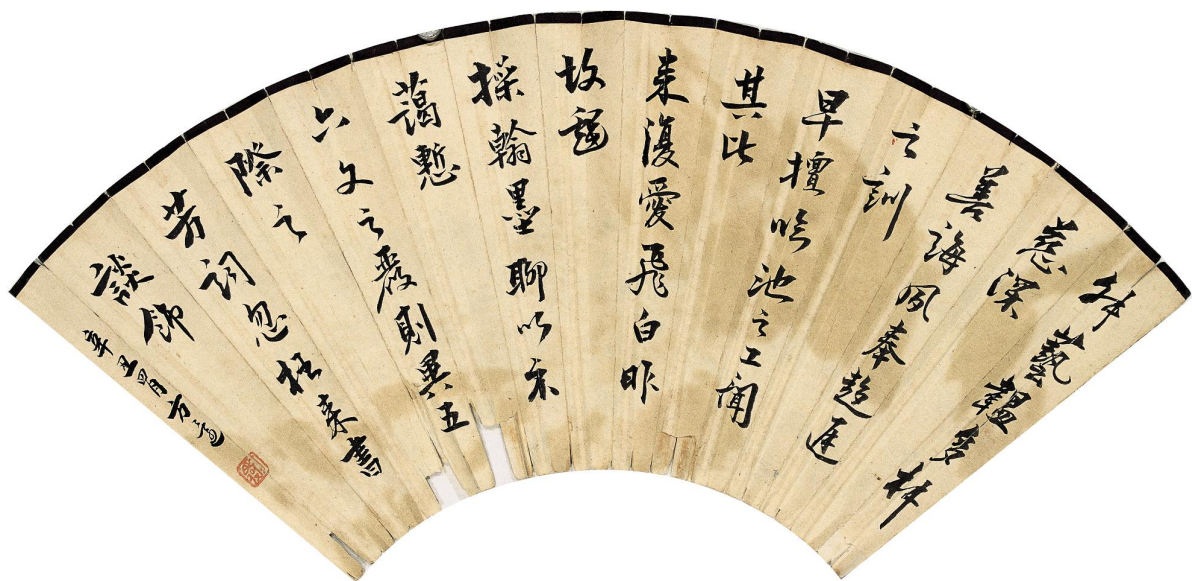 藝韞多材
慈深
善誨夙奉趨庭
之訓
早擅臨池之工聞
其比
来復愛飛白昨
故
操翰墨聊以示
藹慙
六文之嚴則異五
際之
芳詞忽枉来書
談飾
辛丑四月方